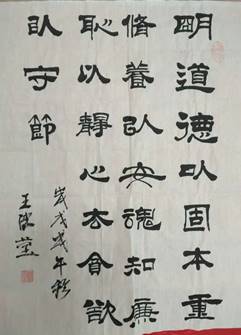 明道德以固本重
脩養以安魂知廉
恥以靜心去貪欲
以守節
歲戊戌年秋
王